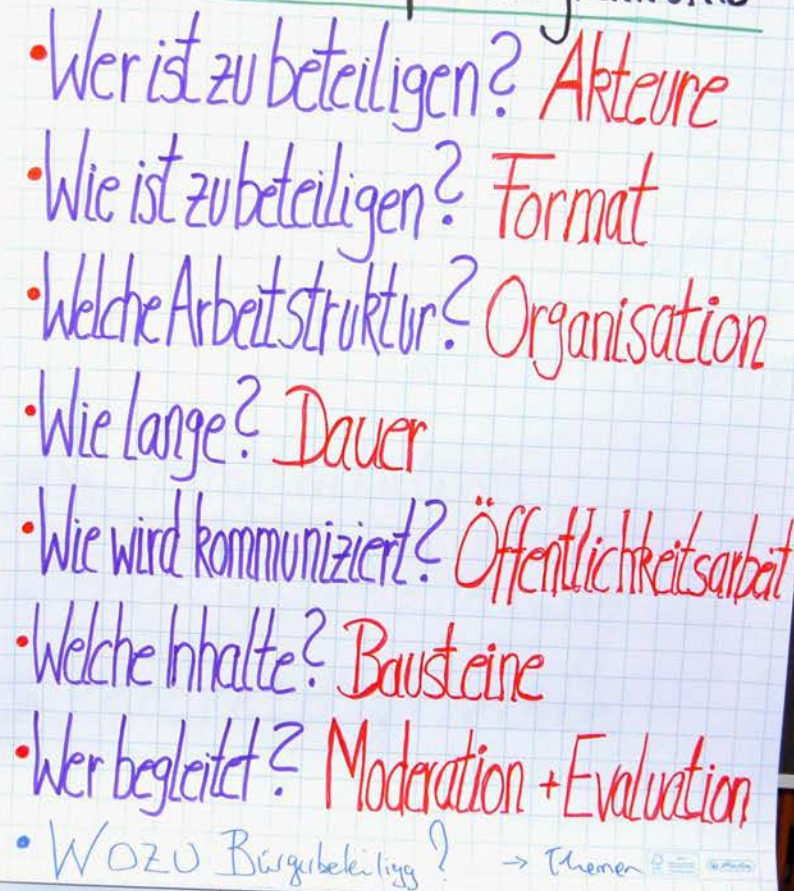 • Wer ist zu beteiligen? Akteure
• Wie ist zu beteiligen? Format
• Welche Arbeitstruktur? Organisation
• Wie lange? Dauer
• Wie wird kommuniziert? Öffentlichkeitsarbeit
• Welche Inhalte? Bausteine
• Wer begleitet? Moderation + Evaluation
• Wozu Bürgerbeteiligg? → Themen